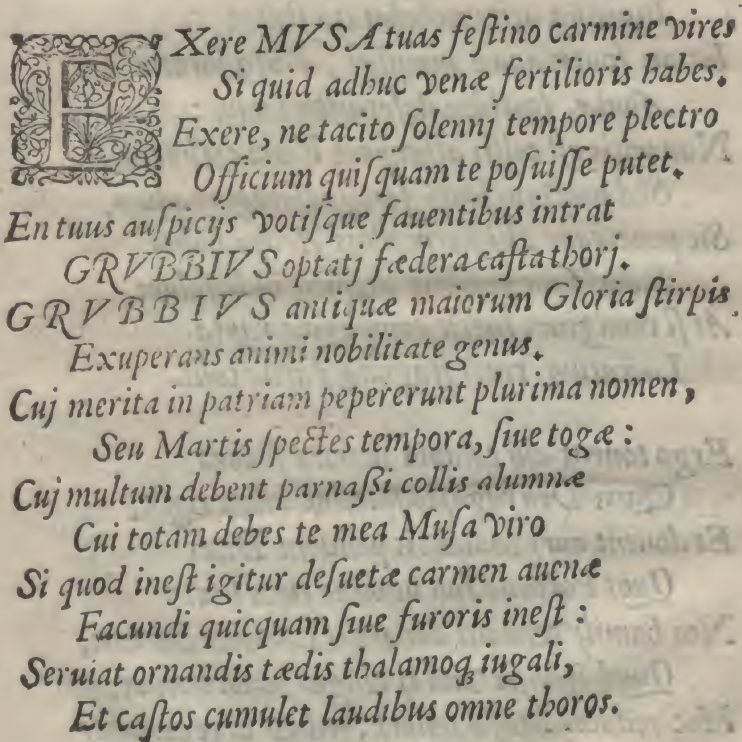 EXere MVSA tuas feſtino carmine vires
Si quid adhuc venæ fertilioris habes.
Exere, ne tacito ſolennj tempore plectro
Officium quiſquam te poſuiſſe putet.
En tuus auſpicijs votiſque fauentibus intrat
GRVBBIVS optatj fædera caſta thorj.
GRVBBIVS antiquæ maiorum Gloria ſtirpis,
Exuperans animi nobilitate genus.
Cuj merita in patriam pepererunt plurima nomen,
Seu Martis ſpectes tempora, ſiue togæ:
Cuj multum debent parnaßi collis alumnæ
Cui totam debes te mea Muſa viro
Si quod ineſt igitur deſuetæ carmen auenæ
Facundi quicquam ſiue furoris ineſt:
Seruiat ornandis tædis thalamoq; iugali,
Et caſtos cumulet laudibus omne thoros.